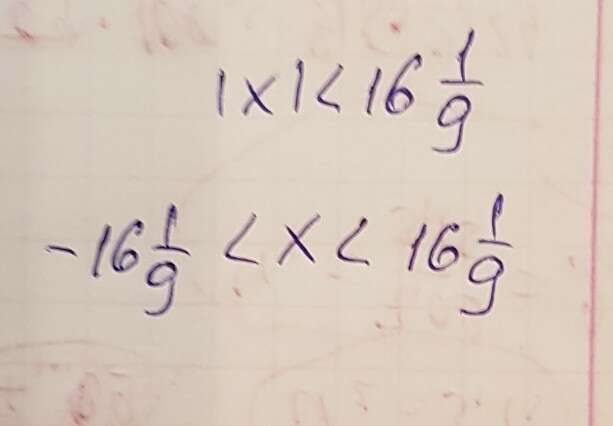 |x|<16 1/9
-16 1/9 < x < 16 1/9